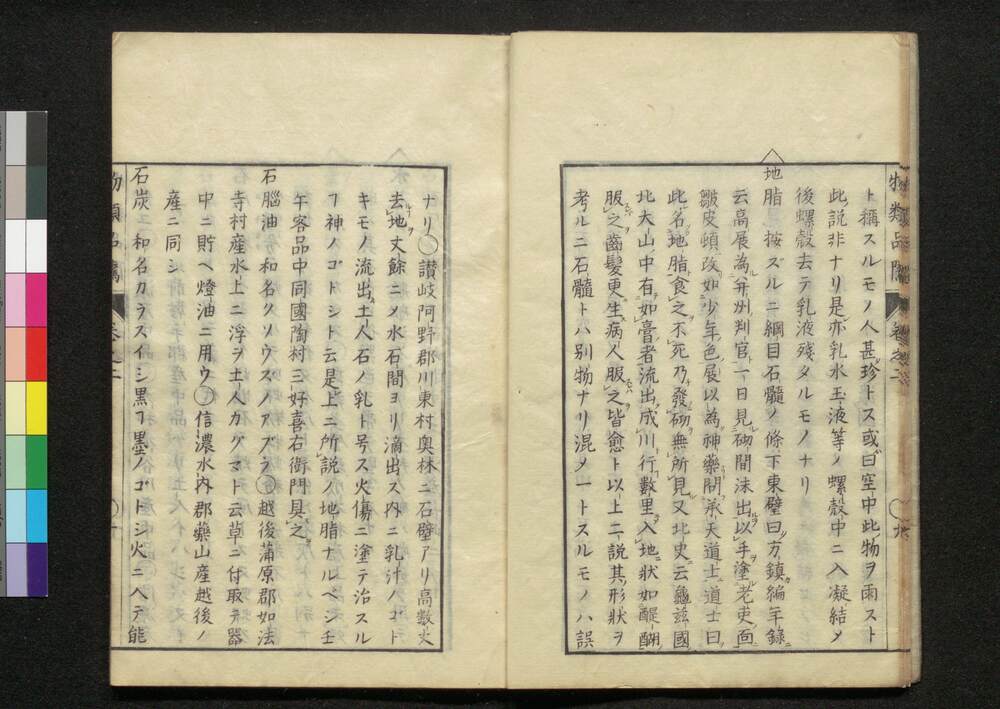 ト稱スルモノ人甚珍トス或曰空中此物ヲ雨スト
此説非ナリ是亦乳水玉液等ノ螺殻中ニ入凝結メ
後螺殻去テ乳液殘タルモノナリ
地脂 按ズルニ綱目石髓ノ條下東壁曰方鎮編年録
云高展為并州判官一日見砌間沫出以手塗老吏面
皺皮頓改如少年色展以為神藥問承天道士道士曰
此名地脂食之不死乃發砌無所見又北史云龜茲國
北大山中有如膏者流出成川行數里入地狀如醍醐
服之齒髪更生病人服之皆愈ト以上二説其形狀ヲ
考ルニ石髓トハ別物ナリ混メ一トスルモノハ誤
物類品隲 巻之二
ナリ○讃岐阿野郡川東村奥林ニ石壁アリ高數丈
去地丈餘ニメ水石間ヨリ滴出ス内ニ乳汁ノゴト
キモノ流出土人石ノ乳ト号ス火傷ニ塗テ治スル
ヿ神ノゴトシト云是上ニ所説ノ地脂ナルベシ壬
午客品中同國陶村三好喜右衛門具之
石腦油 和名クソウズノアブラ○越後蒲原郡如法
寺村産水上ニ浮ヲ土人カグマト云草ニ付取器
中ニ貯ヘ燈油ニ用ウ○信濃水内郡藥山産越後ノ
産ニ同シ
石炭 和名カラスイシ黒ヿ墨ノゴトシ火ニヘテ能
物類品隲 巻之二